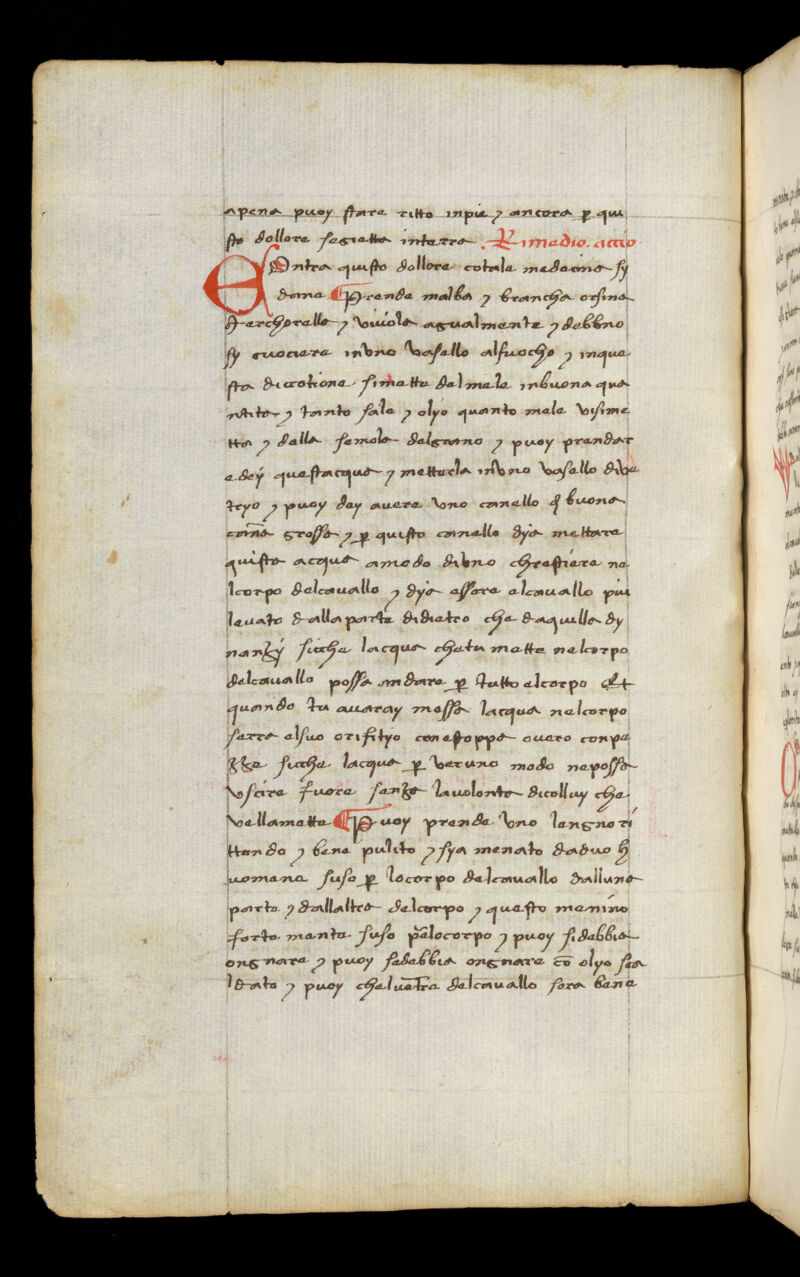 apena puoy stare ritto inpie ⁊ ancora ꝑ qui
sto dollore segietta interra . Rimedio accio
COntra quisto dollore cotale medecina sy
dona ¶ Prende malba ⁊ brancha orsina
⁊ viuole agualmente ⁊ debbno
sy cuociere invno vasello alfuocho ⁊ inque
sta dicotione simette delmele inbuona qua
ntita ⁊ tanto sale ⁊ olyo quanto mele visime
tta ⁊ della semola delgrano ⁊ puoy prendar
e dey questacqua ⁊ metterla invno vasello dive
tryo ⁊ puoy dey auere vno canello di buona
can̄a grossa ⁊ ꝑ quisto canello dya mettare
quista acqua amodo divno chrestiere ne
lcorpo delcavallo ⁊ dya essere elcavallo piu
levato dallaparte didietro che daquilla dy
nanzy sicche lacqua chetu mette nelcorpo
delcavallo possa andare ꝑ tutto elcorpo Et
quando tu auaray messa lacqua nelcorpo
serra elsuo orifityo conestoppa ouero conpe
zza sicche lacqua ꝑ veruno modo neposse
vscire fuore senza lavolonta dicolluy che
vellamette ¶ Puoy prende vno lengno ri
ttondo ⁊ bene pulito ⁊ sya menato daduo h
uomena suso ꝑ locorpo delcavallo dalluna
parte ⁊ dallaltra delcorpo ⁊ questo menino
forte mente suso ꝑ locorpo ⁊ puoy sidebbia
ongnare ⁊ puoy sedebbia ongnare cō olyo sca
ldato ⁊ puoy chelventre delcauallo sera bene